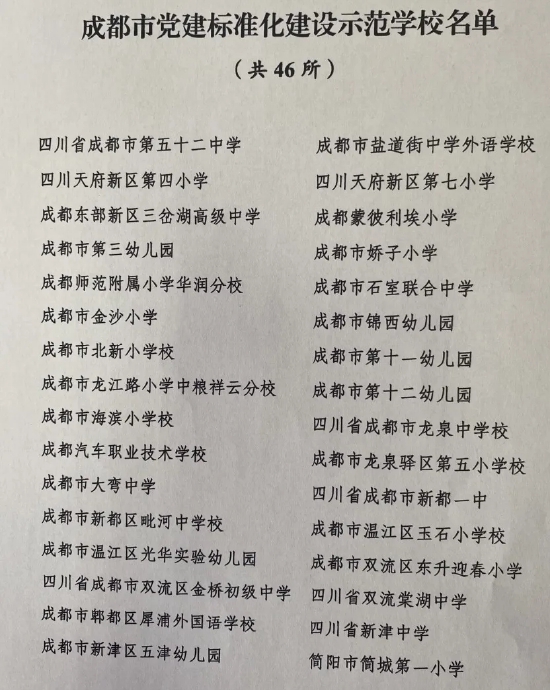 成都市党建标准化建设示范学校名单
（共 46 所）
四川省成都市第五十二中学
成都市盐道街中学外语学校
四川天府新区第四小学
四川天府新区第七小学
成都东部新区三岔湖高级中学
成都蒙彼利埃小学
成都市第三幼儿园
成都市娇子小学
成都师范附属小学华润分校
成都市石室联合中学
成都市金沙小学
成都市锦西幼儿园
成都市北新小学校
成都市第十一幼儿园
成都市龙江路小学中粮祥云分校
成都市第十二幼儿园
成都市海滨小学校
四川省成都市龙泉中学校
成都汽车职业技术学校
成都市龙泉驿区第五小学校
成都市大弯中学
四川省成都市新都一中
成都市新都区毗河中学校
成都市温江区玉石小学校
成都市温江区光华实验幼儿园
成都市双流区东升迎春小学
四川省成都市双流区金桥初级中学
四川省双流棠湖中学
成都市郫都区犀浦外国语学校
四川省新津中学
成都市新津区五津幼儿园
简阳市简城第一小学